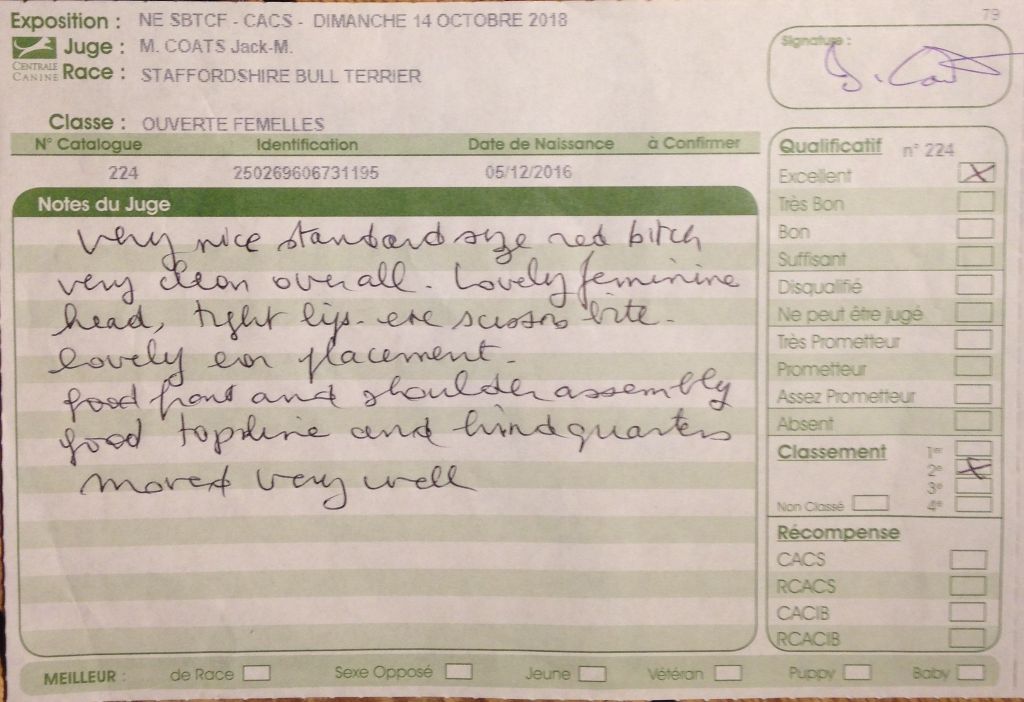 79
Exposition : NE SBTCF - CACS - DIMANCHE 14 OCTOBRE 2018
Juge : M. COATS Jack-M.
CENTRALE CANINE
Race : STAFFORDSHIRE BULL TERRIER
Signature :
J. Coats
Classe : OUVERTE FEMELLES
N° Catalogue Identification Date de Naissance à Confirmer
224 250269606731195 05/12/2016
Notes du Juge
Very nice standard size red bitch
very clean overall. Lovely feminine
head, tight lips. scissors bite.
lovely ear placement.
good front and shoulder assembly
good topline and hindquarters
moved very well
Qualificatif n° 224
Excellent X
Très Bon
Bon
Suffisant
Disqualifié
Ne peut être jugé
Très Prometteur
Prometteur
Assez Prometteur
Absent
Classement 1er
2e X
3e
Non Classé 4e
Récompense
CACS
RCACS
CACIB
RCACIB
MEILLEUR : de Race Sexe Opposé Jeune Vétéran Puppy Baby